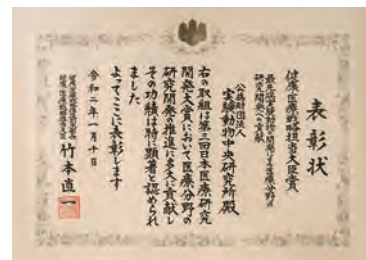 表彰状
健康・医療戦略担当大臣賞
最先端実験動物の開発による医療分野の
研究開発への貢献
公益財団法人
実験動物中央研究所殿
右の取組は第三回日本医療研究
開発大賞において医療分野の
研究開発の推進に多大に貢献し
その功績は特に顕著と認められ
ました
よってここに表彰します
令和二年一月十日
竹本直一